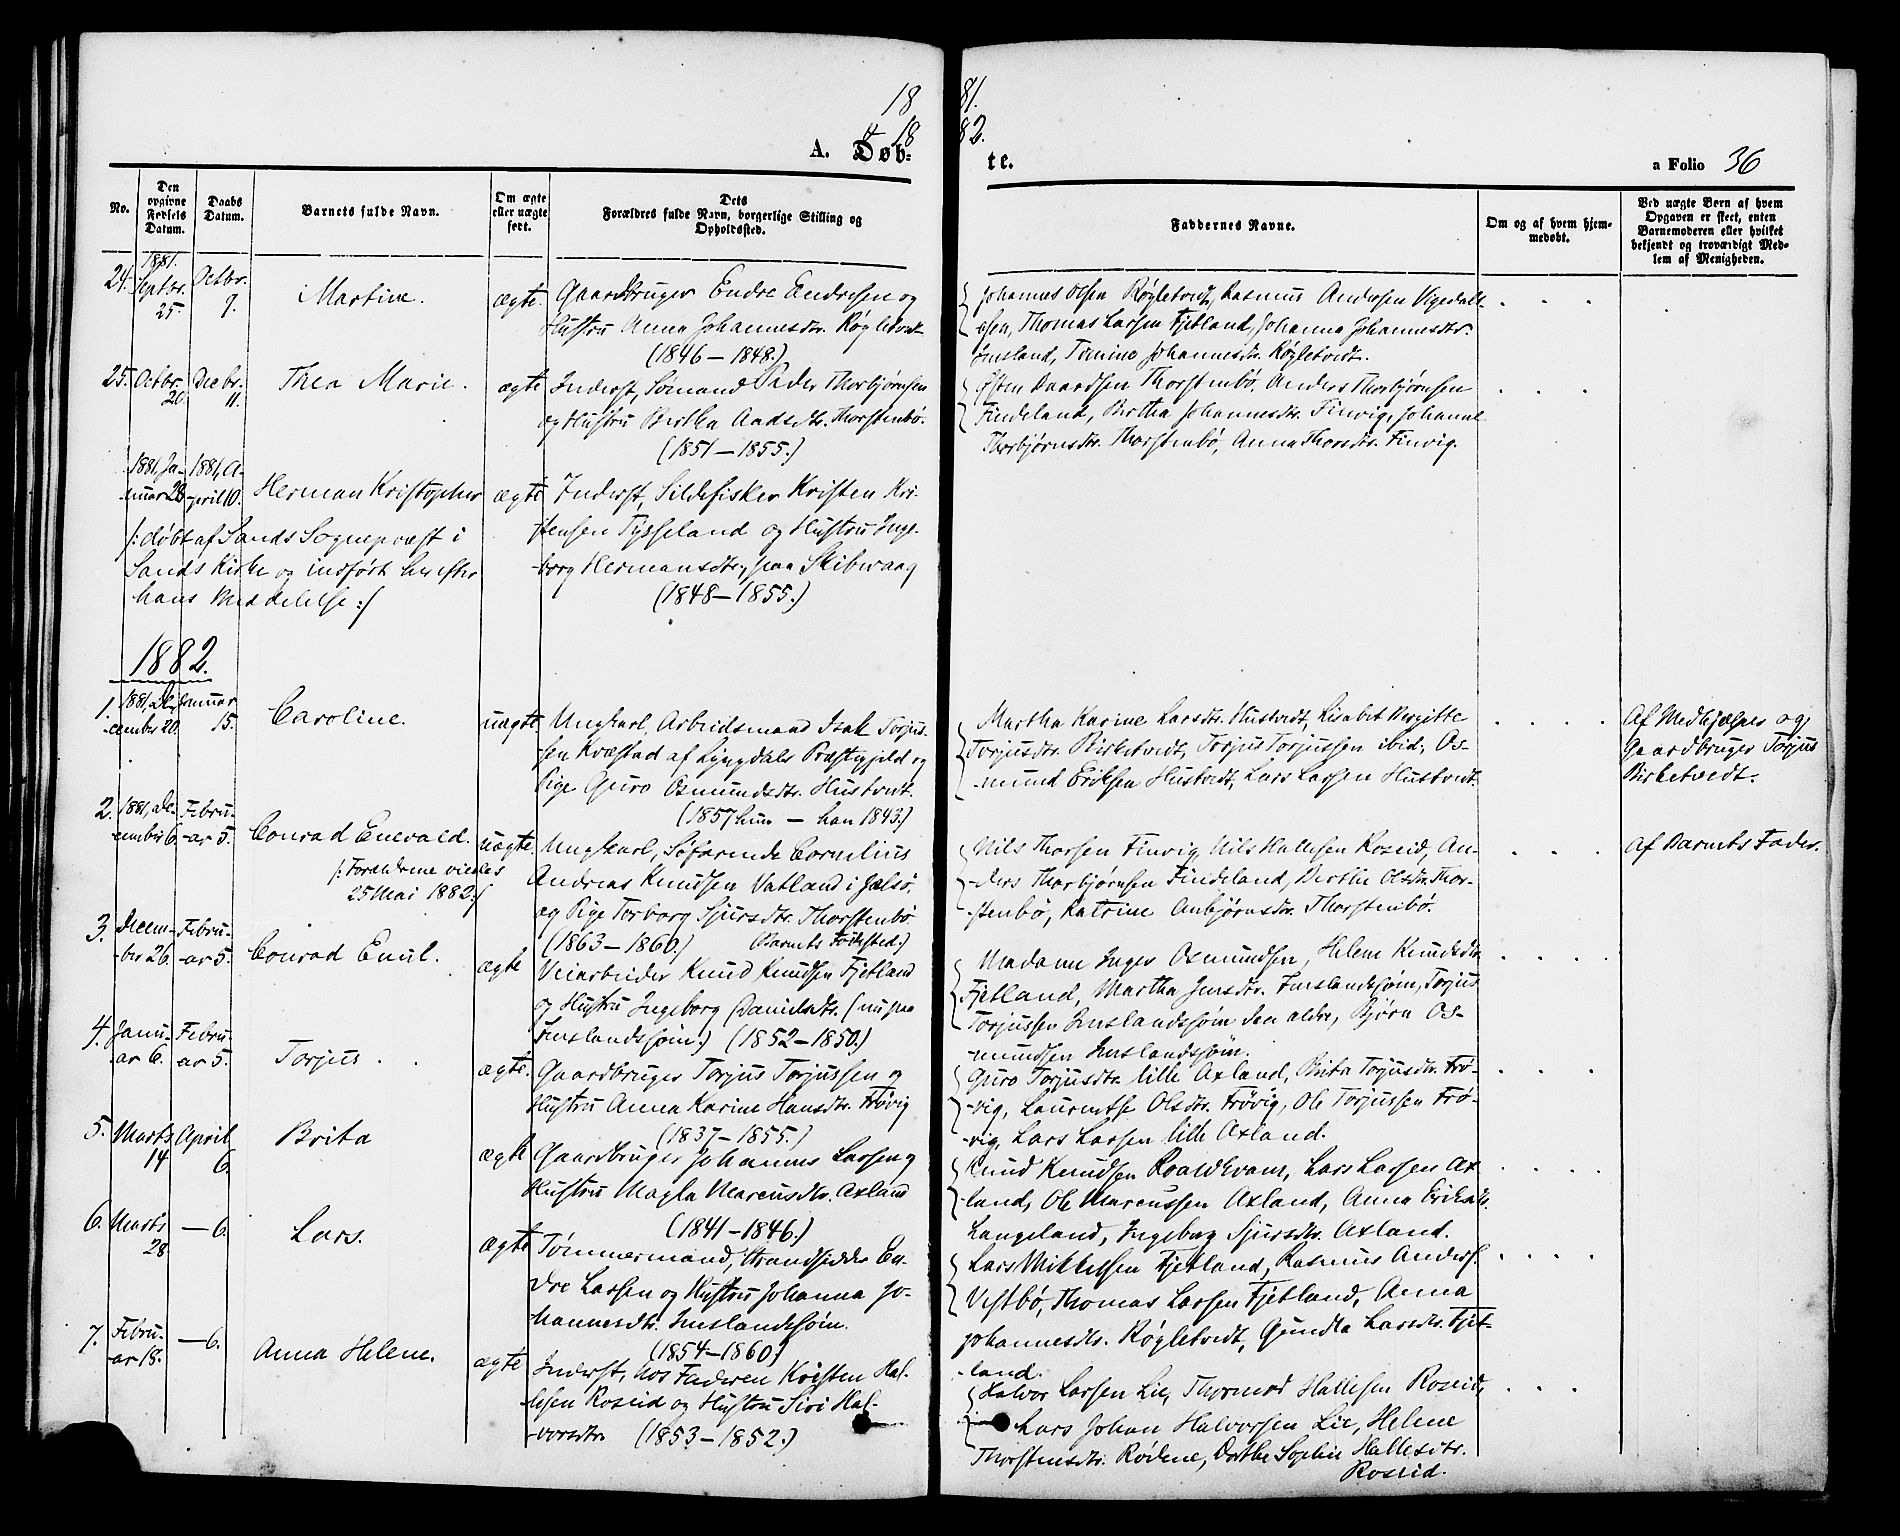 1881.
& 1882.
A. Døbte.
a Folio 36
No.
Den opgivne Fødsels Datum.
Daabs Datum.
Barnets fulde Navn.
Om ægte eller uægte født.
Dets Forældres fulde Navn, borgerlige Stilling og Opholdssted.
Faddernes Navne.
Om og af hvem hjemmedøbt.
Ved uægte Børn af hvem Opgaven er skeet, enten Barnemoderen eller hvilket bekjendt og troværdigt Medlem af Menigheden.
24. 1881. Septbr. 25. Octbr. 9. Martine. ægte.
Gaardbruger Endre Endresen og
Hustru Anna Johannesdtr. Røgletvedt
(1846 – 1848.)
Johannes Olsen Røgletvedt, Rasmus Andersen Vigedalt-
-sen, Thomas Larsen Fjetland, Johanna Johannesdtr.
Ømsland, Tomine Johannesdtr. Røgletvedt.
25. Octbr. 20. Decbr. 11. Thea Marie. ægte
Inderst, Sømand Peder Thorbjørnsen
og Hustru Bertha Aadsdtr. Thorstenbø.
(1851 – 1855.)
Østen Daardsen Thorstenbø, Anders Thorbjørnsen
Findeland, Bertha Johannesdtr. Finvig, Johanne
Thorbjørnsdtr. Thorstenbø, Anna Thorsdtr. Finvig.
1881, Ja-
nuar 28 1881, A-
-pril 10. Herman Kristopher ægte
/: døbt af Sands Sognepræst i
Sands Kirke og indført her efter
hans Meddelelse :/
Inderst, Sildefisker Kristen Kri-
stensen Tysseland og Hustru Inge-
borg Hermansdtr., paa Skibevaag
(1848 – 1855.)
1882.
1. 1881, De-
-cember 20. Januar 15. Caroline. uægte
Ungkarl, Arbeidsmand Isak Torjus-
-sen Kvæstad af Lyngdals Præstegjeld og
Pige Guro Osmundsdtr. Hustvedt.
(1857 hun – han 1843.)
Martha Karine Larsdtr. Hustvedt, Lisabet Bergitte
Torjusdtr. Birketvedt, Torjus Torjussen ibid., Os-
-mund Eriksen Hustvedt, Lars Larsen Hustvedt.
Af Medhjælper og
Gaardbruger Torjus
Birketvedt.
2. 1881, De-
cember 6. Febru-
-ar 5. Conrad Enevald. uægte
/: Forældrene viedes
25 Mai 1882 :/
Ungkarl, Søfarende Cornelius
Andreas Knudsen Vatland i Jelsø,
og Pige Torborg Sjursdtr. Thorstenbø
(1863 – 1860.) (Barnets Fødested.)
Nils Thorsen Finvig, Nils Hallesen Roseid, An-
-ders Thorbjørnsen Findeland, Berthe Olsdtr. Thor-
-stenbø, Katrine Anbjørnsdtr. Thorstenbø.
Af Barnets Fader.
3. Decem-
-ber 26. Febru-
-ar 5. Conrad Emil. ægte
Veiarbeider Knud Knudsen Fjetland
og Hustru Ingeborg Danielsdtr. (nu paa
Imslandssjøen.) (1852 – 1850.)
Madame Inger Osmundsen, Helene Knudsdtr.
Fjetland, Martha Jensdtr. Imslandssjøen, Torjus
Torjussen Imslandssjøen den ældre, Bjørn Os-
-mundsen Imslandssjøen.
4. Janu-
ar 6. Febru-
ar 5. Torjus. ægte.
Gaardbruger Torjus Torjussen og
Hustru Anna Karine Hansdtr. Frøvig
(1837 – 1855.)
Guro Torjusdtr. lille Axland, Brita Torjusdtr. Frø-
-vig, Laurentse Olsdtr. Frøvig, Ole Torjussen Frø-
-vig, Lars Larsen lille Axland.
5. Marts 14 April 6. Brita ægte
Gaardbruger Johannes Larsen og
Hustru Magla Marcusdtr. Axland
(1841 – 1846.)
Knud Knudsen Roaldkvam, Lars Larsen Ax-
-land, Ole Marcussen Axland, Anna Eriksdtr.
Langeland, Ingeborg Sjursdtr. Axland.
6. Marts 28 — 6. Lars. ægte
Tømmermand, Strandsidder En-
dre Larsen og Hustru Johanna Jo-
hannesdtr. Imslandssjøen.
(1854 – 1860.)
Lars Mikkelsen Fjetland, Rasmus Anders.
Vestbø, Thomas Larsen Fjetland, Anna
Johannesdtr. Røgletvedt, Gundla Larsdtr. Fjet-
-land.
7. Febru-
-ar 18. — 6. Anna Helene. ægte
Inderst, hos Faderen Kristen Hal-
lesen Roseid og Hustru Siri Hal-
-vorsdtr. (1853 – 1852.)
Halvor Larsen Lie, Thormod Hallesen Roseid,
Lars Johan Halvorsen Lie, Helene
Thorstensdtr. Rødene, Dorthe Sophie Hallesdtr.
Roseid.